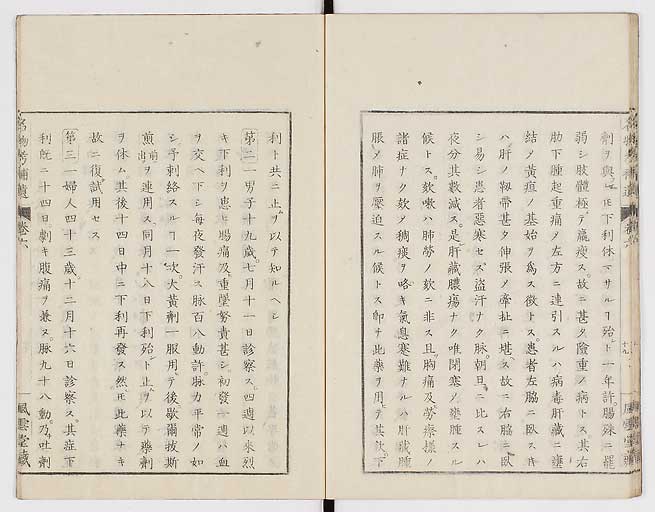 劑ヲ與フレ𪜈下利休マサルヲ殆ト一年許腸殊ニ罷
弱シ肢體極テ羸瘦ス故ニ甚タ險重ノ病トス其右
肋下腫起重痛ノ左方ニ連引スルハ病毒肝藏ニ壅
結メ黃疸ノ基始ヲ爲ス徵トス患者左脇ニ臥スキ
ハ肝ノ靱帶甚タ伸張メ牽扯ニ堪ス故ニ右脇ニ臥
シ易シ患者惡寒セズ盜汗ナク脉朝旦ニ比スレハ
夜分其數減ス是肝藏膿瘍ナク唯閉塞ノ壅腫スル
候トス欬嗽ハ肺勞ノ欬ニ非ス且胸痛及勞瘵ノ
諸症ナク欬メ稠痰ヲ咯キ氣息塞難ナルハ肝藏腫
脹メ肺ヲ壓迫スル候トス卽チ此藥ヲ用テ其欬下
利ト共ニ止ヲ以テ知ルヘシ
第二一男子十九歲七月十一日診察ス四週以來烈
キ下利ヲ患ヒ腸痛及重墜努責甚シ初發一週ハ血
ヲ交ヘ下シ每夜發汗ス脉百八動許脉力平常ノ如
シ予刺絡スルヿ一次大黃劑一服用テ後歇爾拔斯
煎前出ヲ連用ス同月十八日下利殆ト止ヲ以テ藥劑
ヲ休ム其後十四日中ニ下利再發ス然𪜈此藥ナキ
故ニ復試用セス
第三一婦人四十三歲十二月十六日診察ス其症下
利旣ニ十四日劇キ腹痛ヲ兼ス脉九十八動乃吐劑
名物考補遺
卷六
風雲堂藏